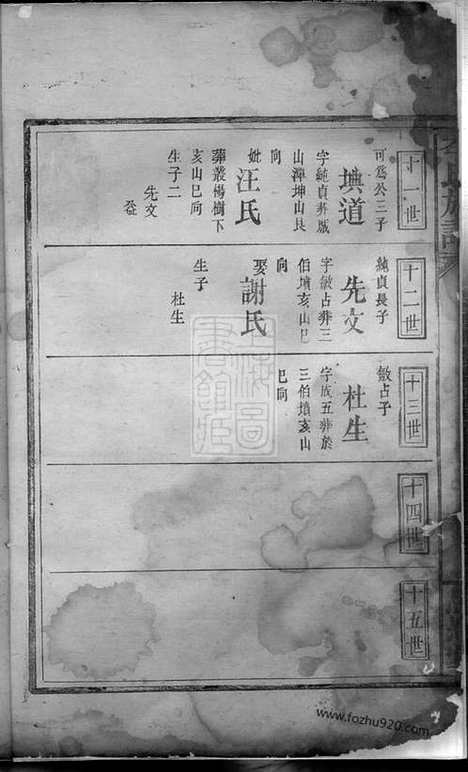 十一世
可爲公三子
㙉道
字純貞葬殿
山潭坤山艮
向
妣汪氏
葬叢楊樹下
亥山巳向
生子二
先文
十二世
純貞長子
先文
字敏占葬三
伯墳亥山巳
向
娶謝氏
生子
杜生
十三世
敏占子
杜生
字成五葬於
三伯墳亥山
巳向
十四世
十五世
上海圖
書館藏
www.fozhu920.com